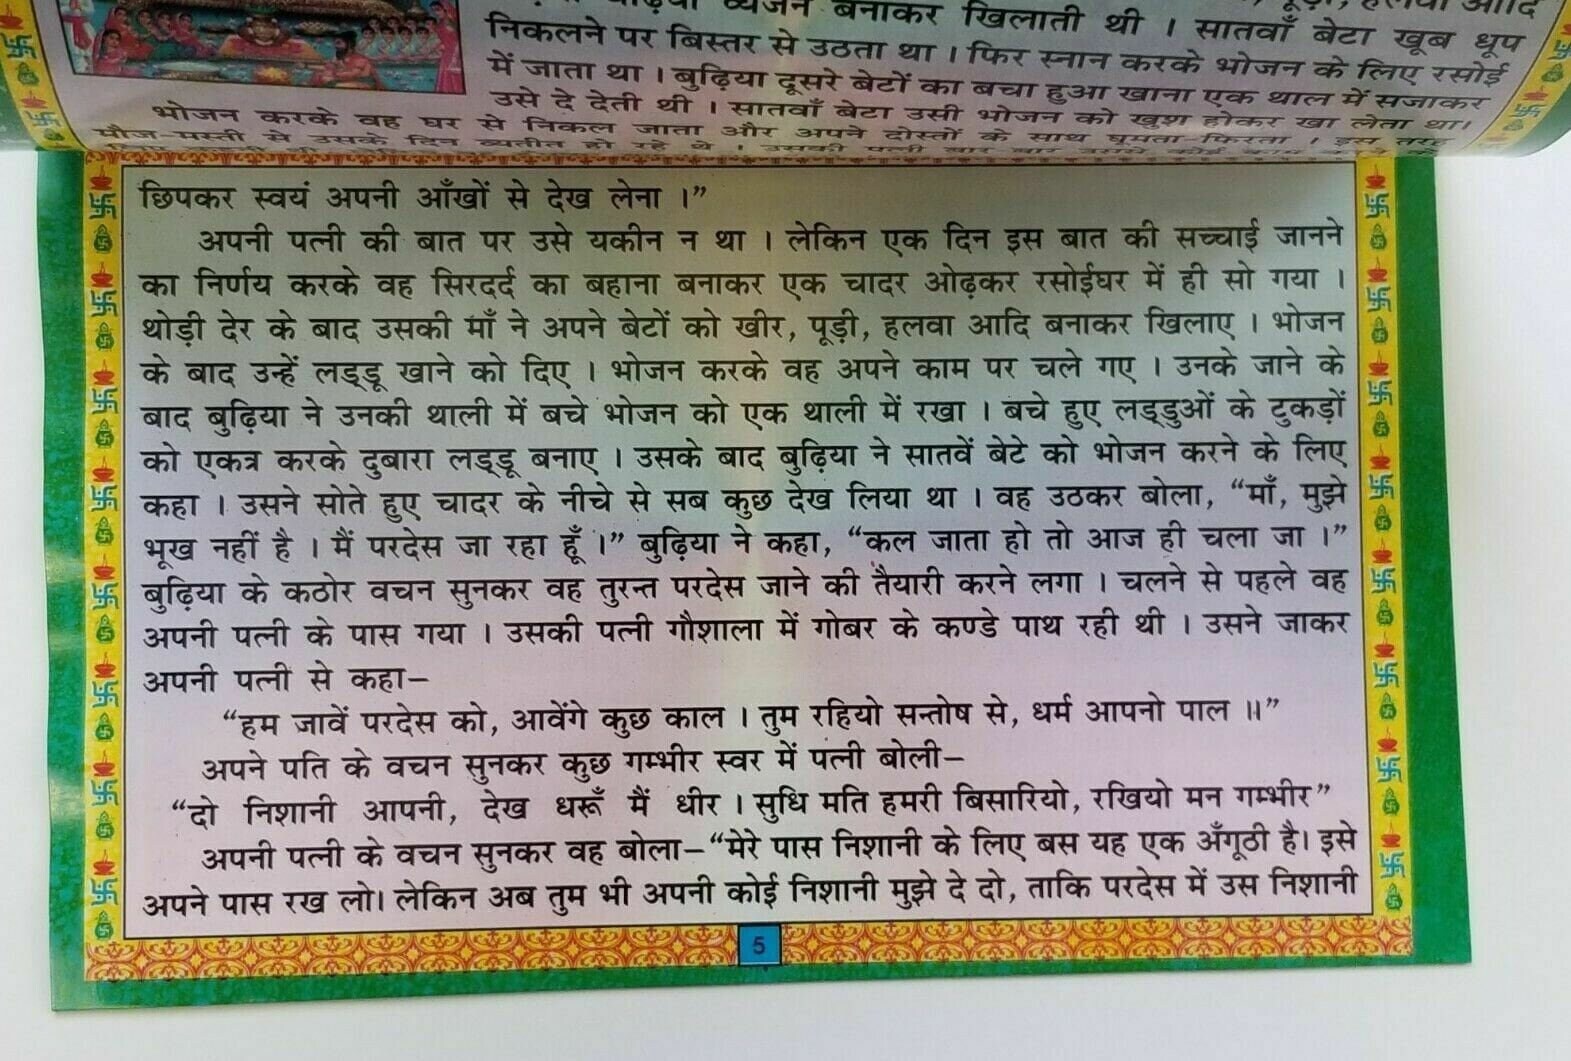 व्यंजन बनाकर खिलाती थी । सातवाँ बेटा खूब धूप
निकलने पर बिस्तर से उठता था । फिर स्नान करके भोजन के लिए रसोई
में जाता था । बुढ़िया दूसरे बेटों का बचा हुआ खाना एक थाल में सजाकर
उसे दे देती थी । सातवाँ बेटा उसी भोजन को खुश होकर खा लेता था।
भोजन करके वह घर से निकल जाता और अपने दोस्तों के साथ घूमता फिरता । इस तरह
मौज-मस्ती से उसके दिन व्यतीत हो रहे थे । उसकी पत्नी बार बार
छिपकर स्वयं अपनी आँखों से देख लेना ।”
अपनी पत्नी की बात पर उसे यकीन न था । लेकिन एक दिन इस बात की सच्चाई जानने
का निर्णय करके वह सिरदर्द का बहाना बनाकर एक चादर ओढ़कर रसोईघर में ही सो गया ।
थोड़ी देर के बाद उसकी माँ ने अपने बेटों को खीर, पूड़ी, हलवा आदि बनाकर खिलाए । भोजन
के बाद उन्हें लड्डू खाने को दिए । भोजन करके वह अपने काम पर चले गए । उनके जाने के
बाद बुढ़िया ने उनकी थाली में बचे भोजन को एक थाली में रखा । बचे हुए लड्डुओं के टुकड़ों
को एकत्र करके दुबारा लड्डू बनाए । उसके बाद बुढ़िया ने सातवें बेटे को भोजन करने के लिए
कहा । उसने सोते हुए चादर के नीचे से सब कुछ देख लिया था । वह उठकर बोला, “माँ, मुझे
भूख नहीं है । मैं परदेस जा रहा हूँ ।” बुढ़िया ने कहा, “कल जाता हो तो आज ही चला जा ।”
बुढ़िया के कठोर वचन सुनकर वह तुरन्त परदेस जाने की तैयारी करने लगा । चलने से पहले वह
अपनी पत्नी के पास गया । उसकी पत्नी गौशाला में गोबर के कण्डे पाथ रही थी । उसने जाकर
अपनी पत्नी से कहा–
“हम जावें परदेस को, आवेंगे कुछ काल । तुम रहियो सन्तोष से, धर्म आपनो पाल ॥”
अपने पति के वचन सुनकर कुछ गम्भीर स्वर में पत्नी बोली–
“दो निशानी आपनी, देख धरूँ मैं धीर । सुधि मति हमरी बिसारियो, रखियो मन गम्भीर”
अपनी पत्नी के वचन सुनकर वह बोला–“मेरे पास निशानी के लिए बस यह एक अँगूठी है। इसे
अपने पास रख लो। लेकिन अब तुम भी अपनी कोई निशानी मुझे दे दो, ताकि परदेस में उस निशानी
5